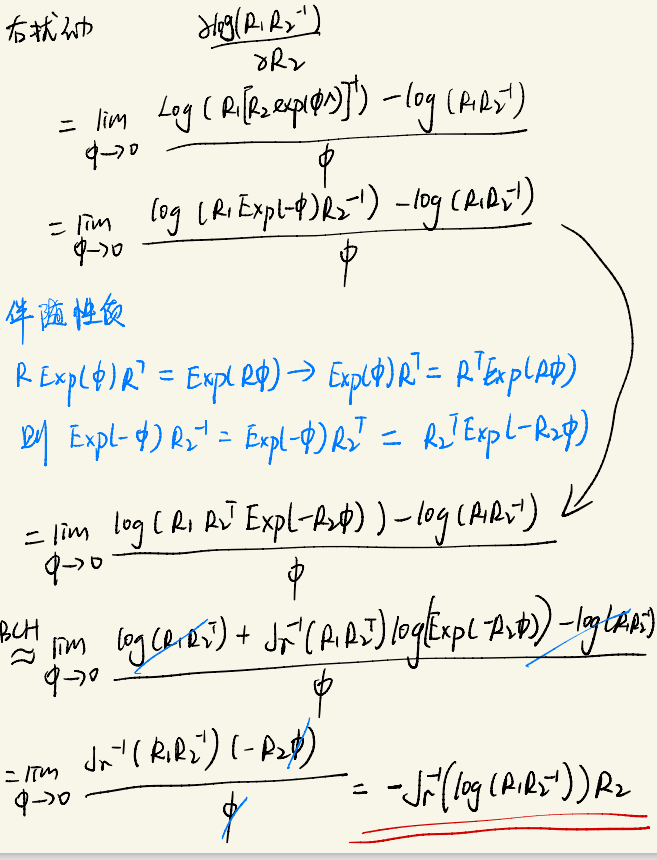 右扰动 ∂log(R₁R₂⁻¹) / ∂R₂
= lim ϕ→0 Log(R₁[R₂exp(ϕ^)]⁻¹) - log(R₁R₂⁻¹) / ϕ
= lim ϕ→0 log(R₁Exp(-ϕ)R₂⁻¹) - log(R₁R₂⁻¹) / ϕ
伴随性质
R Exp(ϕ)Rᵀ = Exp(Rϕ) → Exp(ϕ)Rᵀ = RᵀExp(Rϕ)
则 Exp(-ϕ)R₂⁻¹ = Exp(-ϕ)R₂ᵀ = R₂ᵀExp(-R₂ϕ)
= lim ϕ→0 log(R₁R₂ᵀExp(-R₂ϕ)) - log(R₁R₂⁻¹) / ϕ
BCH ≈ lim ϕ→0 log(R₁R₂ᵀ) + Jr⁻¹(R₁R₂ᵀ)log(Exp(-R₂ϕ)) - log(R₁R₂⁻¹) / ϕ
= lim ϕ→0 Jr⁻¹(R₁R₂⁻¹)(-R₂ϕ) / ϕ = -Jr⁻¹(log(R₁R₂⁻¹))R₂